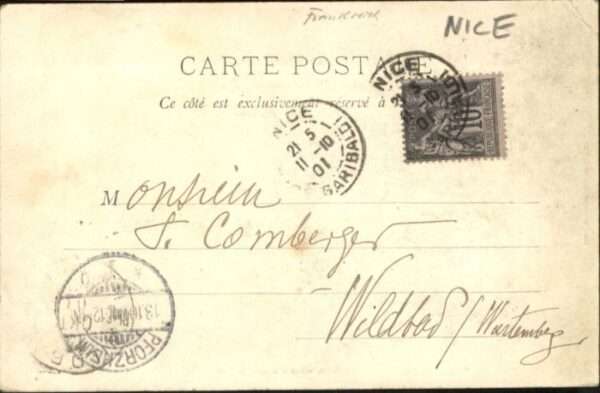 Frankreich
NICE
CARTE POSTALE
Ce côté est exclusivement réservé à
NICE
21 5
11 -10
01
GARIBALDI
NICE
21 5
11 -10
01
Monsieur
Comberger
Wildbad / Wurtemberg
PFORZHEIM